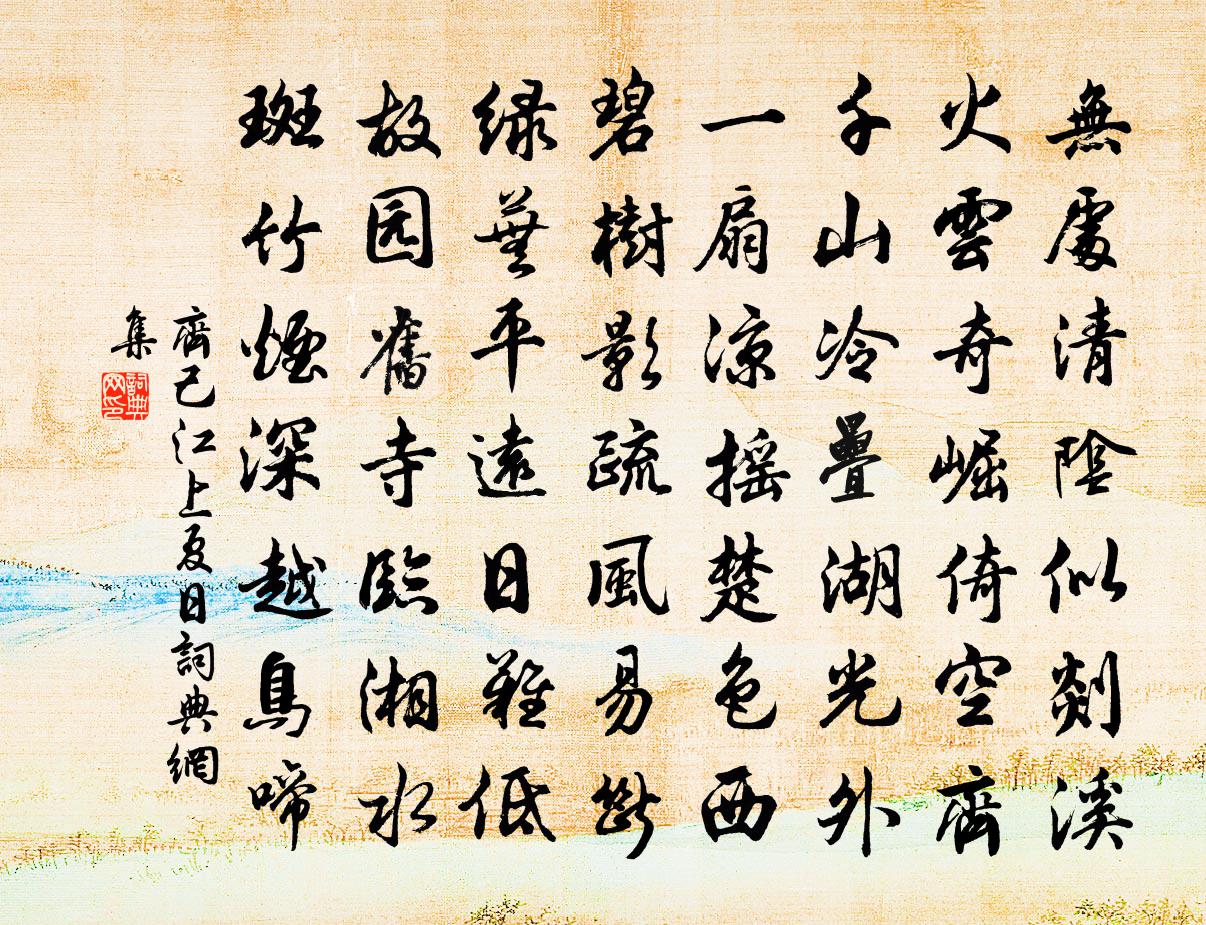 無處清陰似剡溪
火雲奇崛倚空齊
千山冷疊湖光外
一扇凉搖楚色西
碧樹影疏風易斷
緑蕪平遠日難低
故园舊寺臨湘水
斑竹煙深越鳥啼
齊己江上夏日詞典網
集
詞典
网印